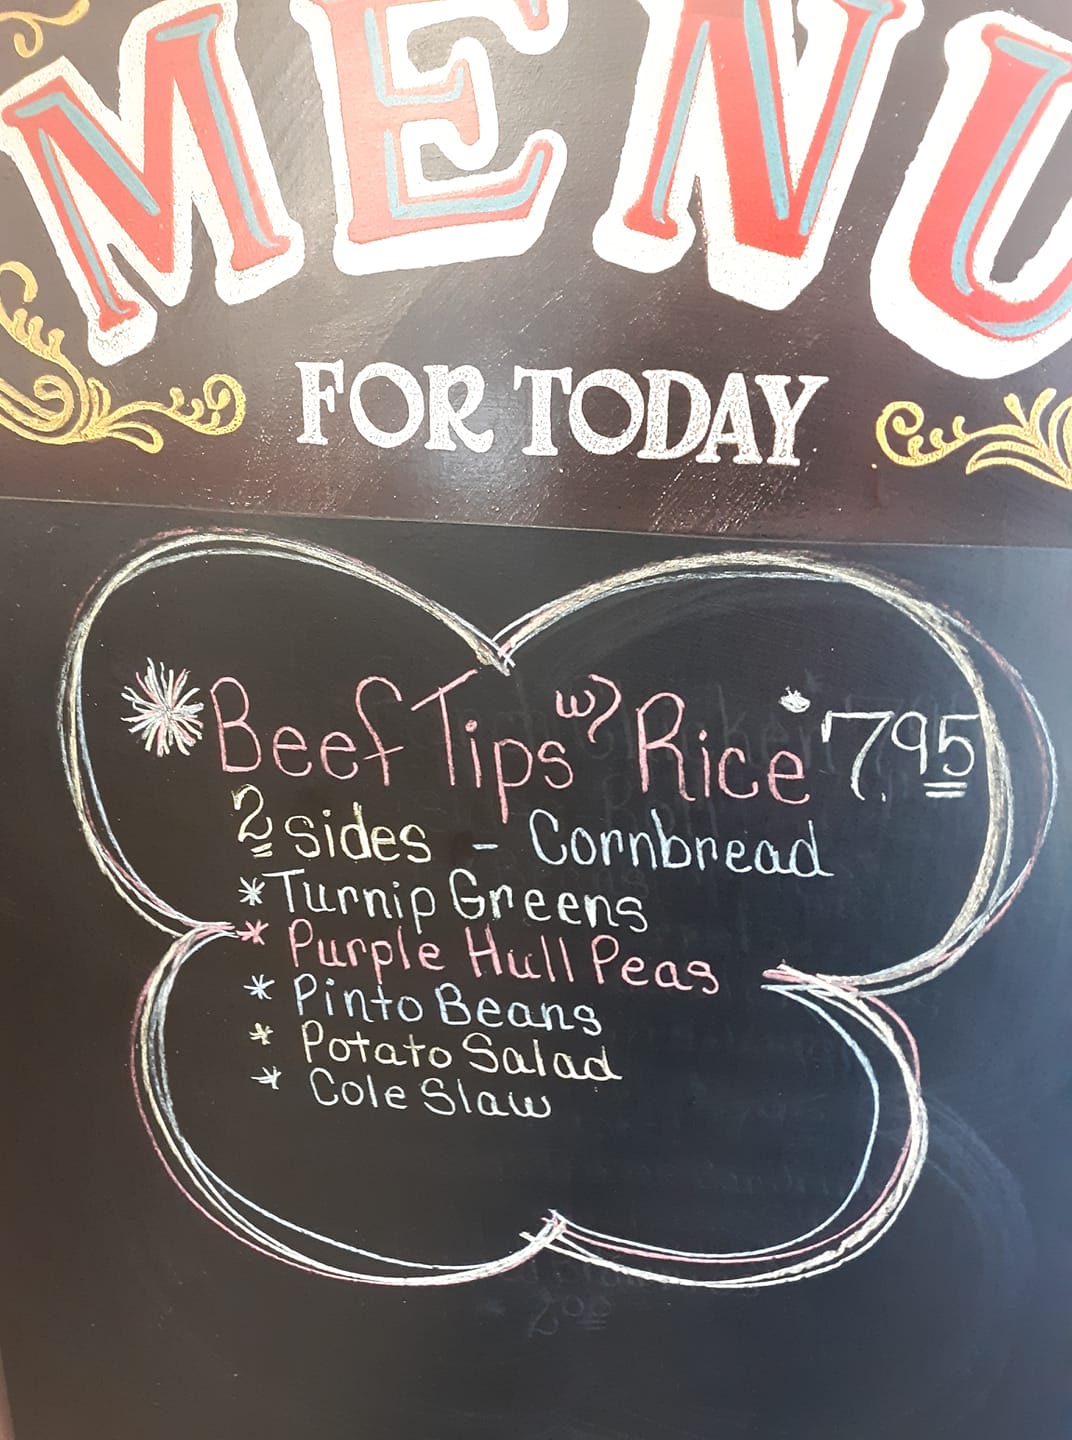 MENU
FOR TODAY
*Beef Tips w/ Rice* 7.95
2 sides - Cornbread
* Turnip Greens
* Purple Hull Peas
* Pinto Beans
* Potato Salad
* Cole Slaw